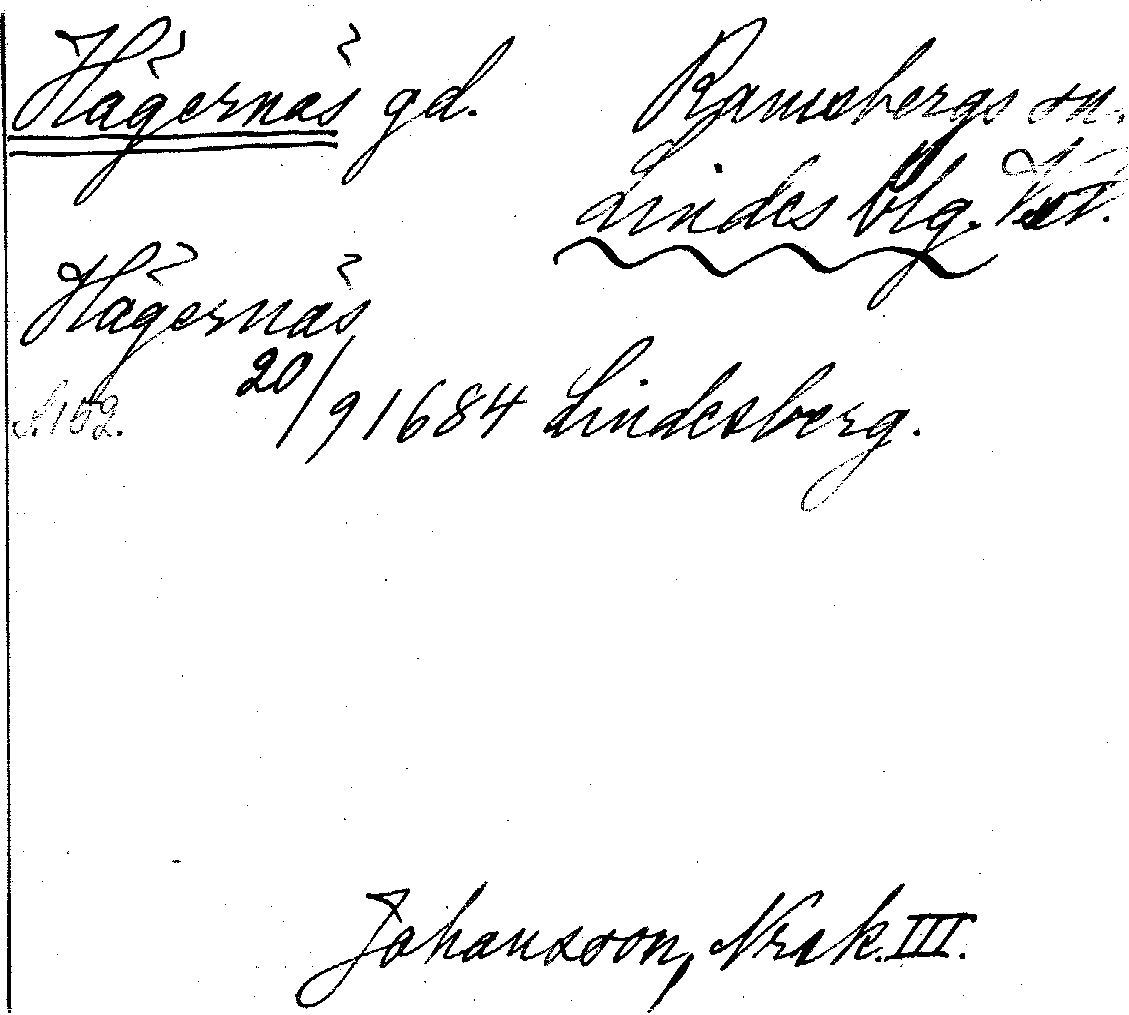 Hägernäs gd. Ramsbergs sn.
Lindes blg. Vstl.
Hägernäs
S. 152. 20/9 1684 Lindesberg.
Johansson, Nrsk. III.